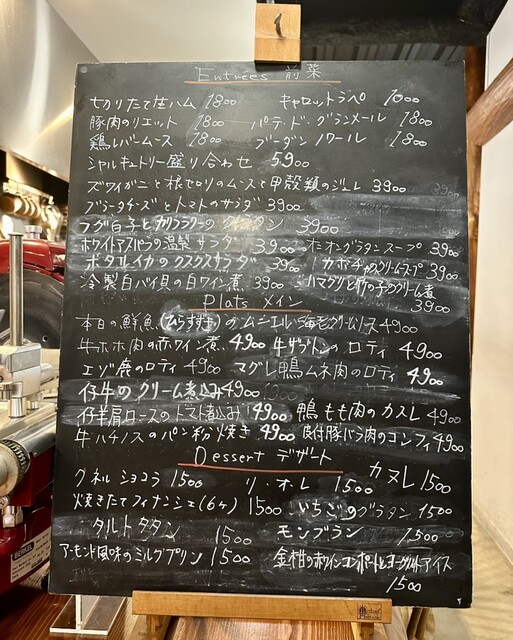 1
Entrées 前菜
切りたて生ハム 1800 キャロットラペ 1000
豚肉のリエット 1800 パテ・ド・グランメール 1800
鶏レバームース 1800 ブーダンノワール 1800
シャルキュトリー盛り合わせ 5900
ズワイガニと根セロリのムースと甲殻類のジュレ 3900
ブラータチーズとトマトのサラダ 3900
フグ白子とカリフラワーのグラタン 3900
ホワイトアスパラの温製サラダ 3900 オニオングラタンスープ 3900
ホタルイカのクスクスサラダ 3900 カボチャのクリームスープ 3900
冷製白バイ貝の白ワイン煮 3900 ハマグリと竹の子のクリーム煮 3900
Plats メイン
本日の鮮魚(ひらすずき)のムニエル 海老クリームソース 4900
牛ホホ肉の赤ワイン煮 4900 牛ザブトンのロティ 4900
エゾ鹿のロティ 4900 マグレ鴨ムネ肉のロティ 4900
仔牛のクリーム煮込み 4900
仔羊肩ロースのトマト煮込み 4900 鴨もも肉のカスレ 4900
牛ハチノスのパン粉焼き 4900 皮付豚バラ肉のコンフィ 4900
Dessert デザート
クネルショコラ 1500 リ・オ・レ 1500 カヌレ 1500
焼きたてフィナンシェ(6ヶ) 1500 いちごのグラタン 1500
タルトタタン 1500 モンブラン 1500
アーモンド風味のミルクプリン 1500 金柑の赤ワインコンポートとヨーグルトアイス 1500
BERKEL